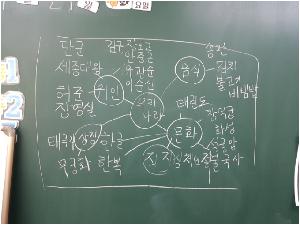 요일
단군
세종대왕
허준
장영실
김구
안중근
유관순
이순신
위인
우리
나라
음식
송편
김치
불고기
비빔밥
태권도
문화
상징
태극기
한글
무궁화
한복
화성
석굴암
불국사
#1
2